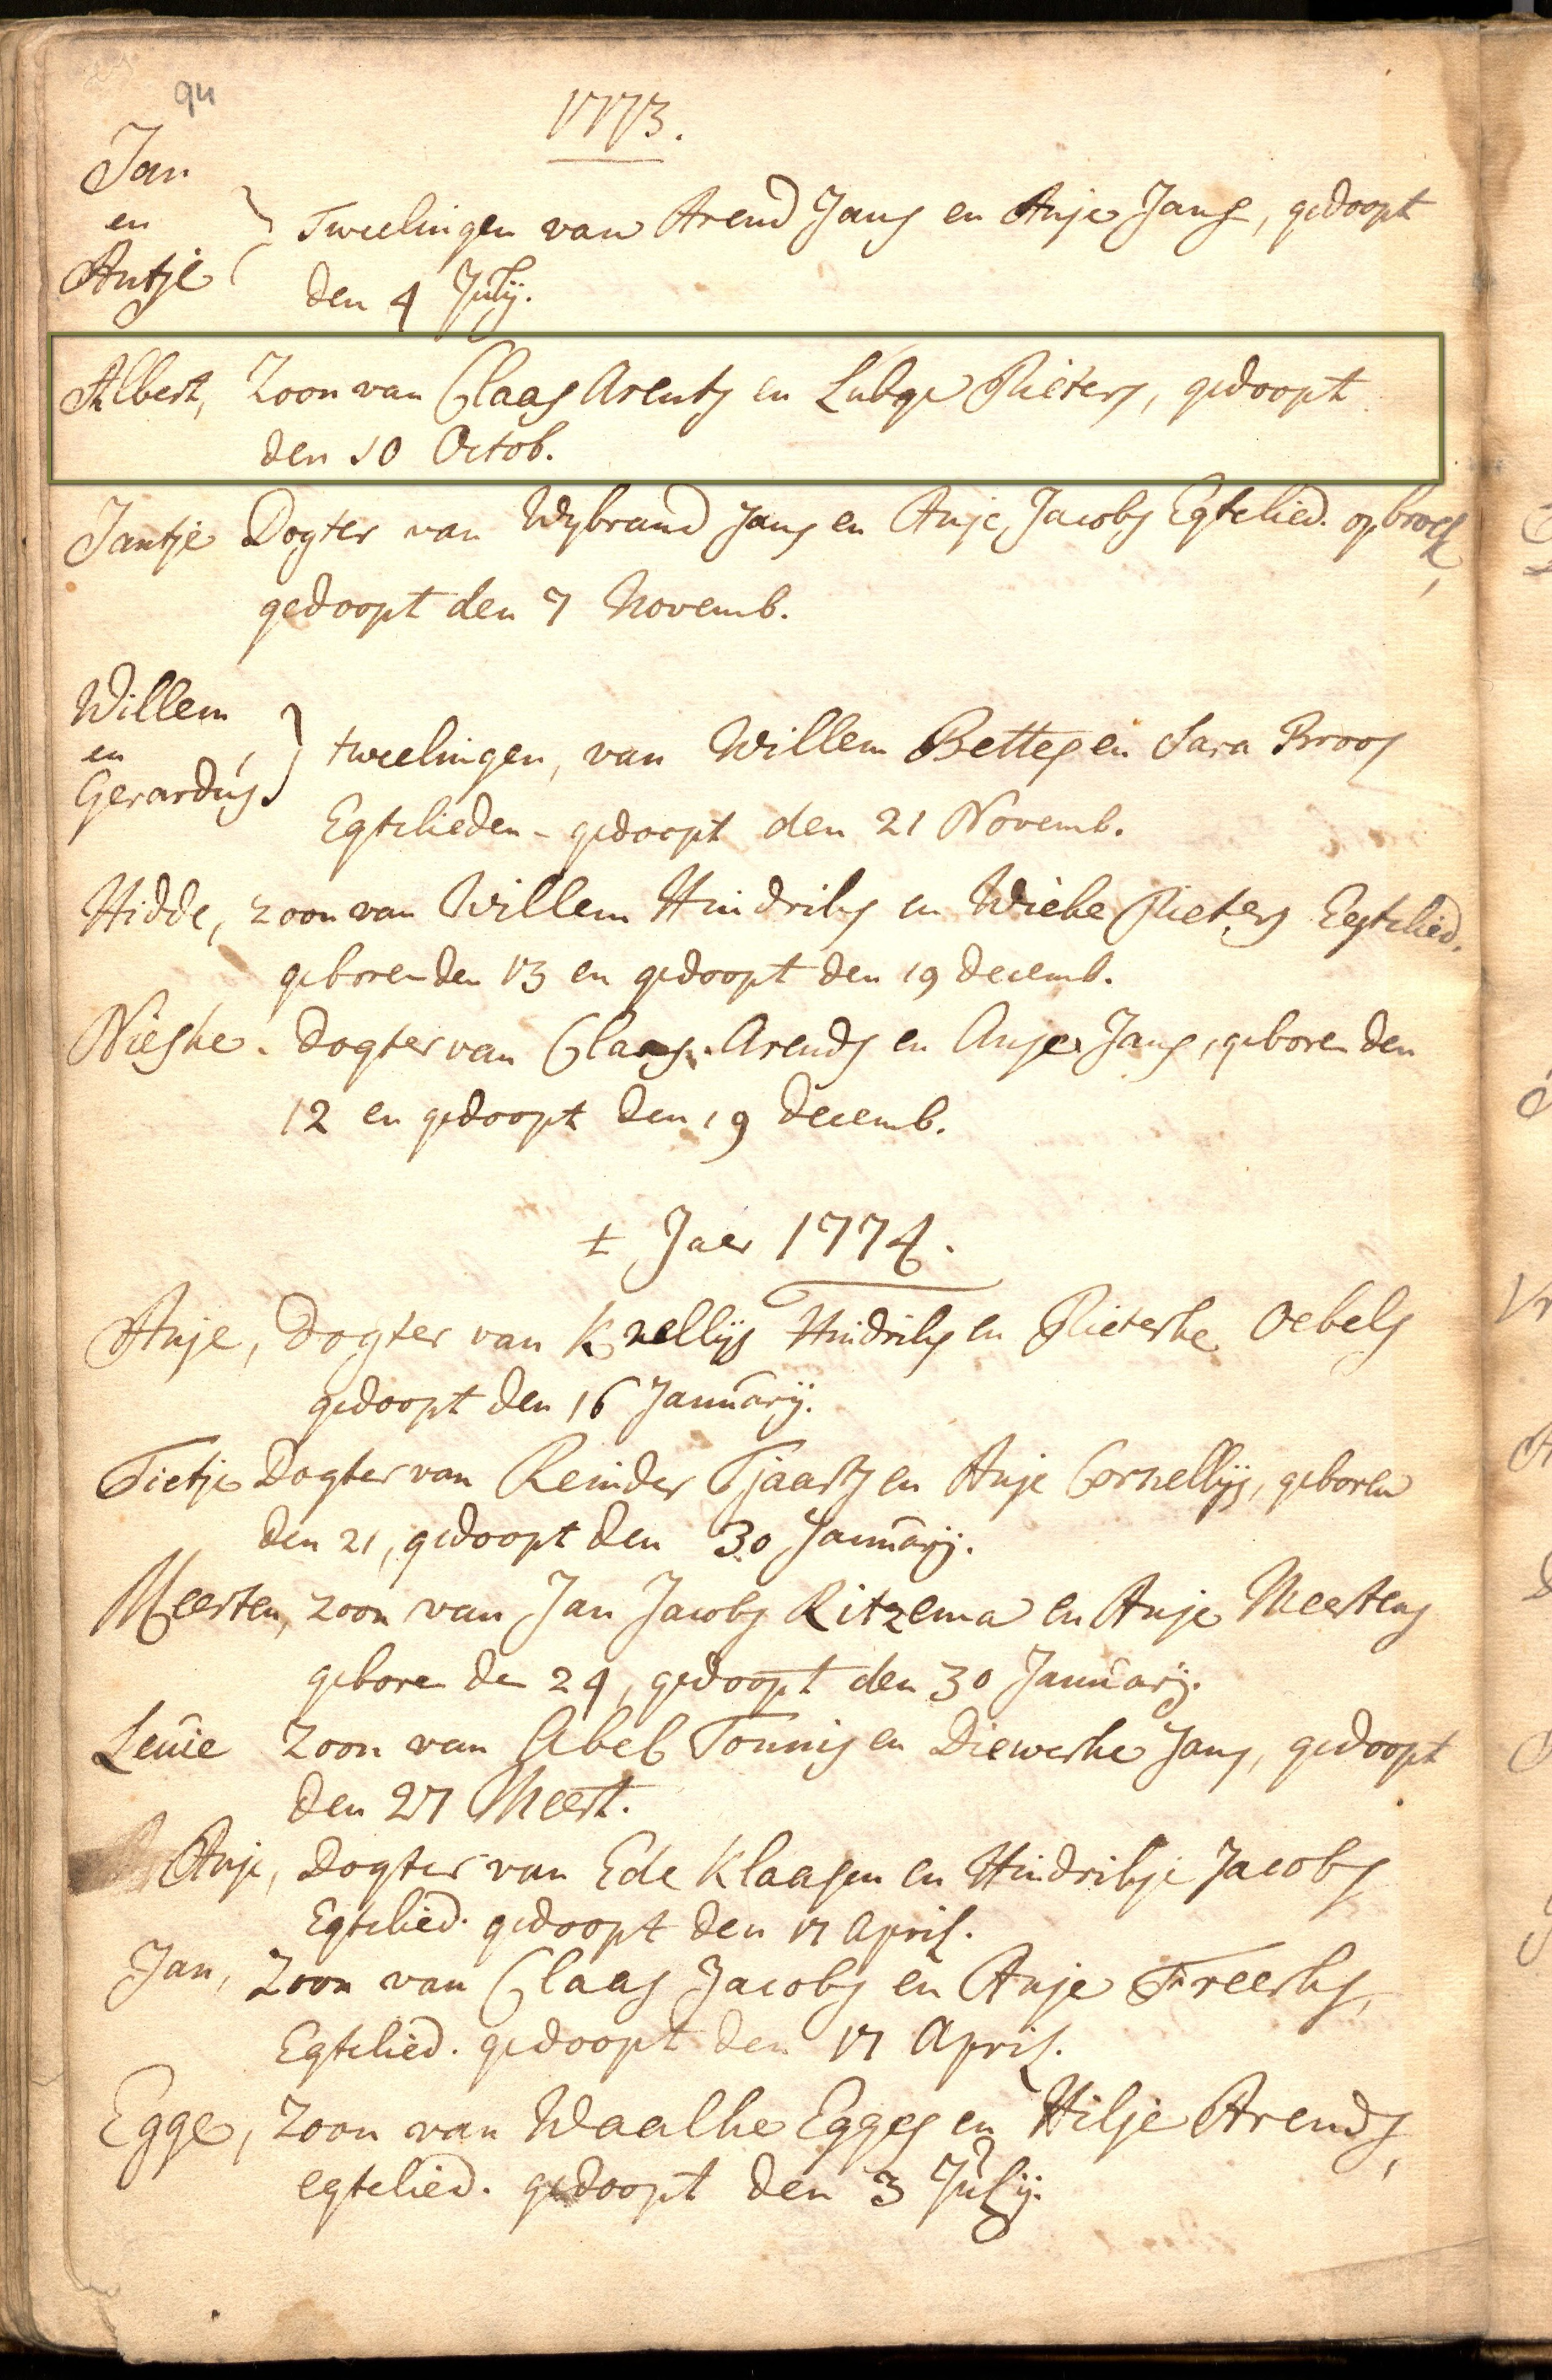 94
1773.
Jan
en
Antje
Tweelingen van Arend Jans en Anje Jans, gedoopt
den 4 Julij.
Albert, Zoon van Claas Arents en Lubge Pieters, gedoopt
den 10 Octob.
Jantje Dogter van Wybrand Jans en Anje Jacobs Egtelied. op broek,
gedoopt den 7 Novemb.
Willem
en
Gerardus
tweelingen, van Willem Bettes en Sara Broos
Egtelieden - gedoopt den 21 Novemb.
Hidde, zoon van Willem Hindriks en Wieke Pieters Egtelied.
geboren den 13 en gedoopt den 19 decemb.
Nieske. dogter van Claas Arends en Anje Jans, geboren den
12 en gedoopt den 19 decemb.
t Jaer 1774.
Anje, Dogter van Knellijs Hindriks en Pieterke Oebels
gedoopt den 16 Januarij.
Tietje Dogter van Reinder Tjaarts en Anje Cornellijs, geboren
den 21, gedoopt den 30 Januarij.
Meerten, zoon van Jan Jacobs Ritzema en Anje Meertens
geboren den 24, gedoopt den 30 Januarij.
Leuie Zoon van Abel Tonnis en Dieuwerke Jans, gedoopt
den 27 Meert.
Anje, Dogter van Ede Klaasen en Hindrikje Jacobs
Egtelied. gedoopt den 17 April.
Jan, Zoon van Claas Jacobs en Anje Freerks,
Egtelied. gedoopt den 17 April.
Egge, Zoon van Waalke Egges en Hilje Arends,
egtelied. gedoopt den 3 Julij.